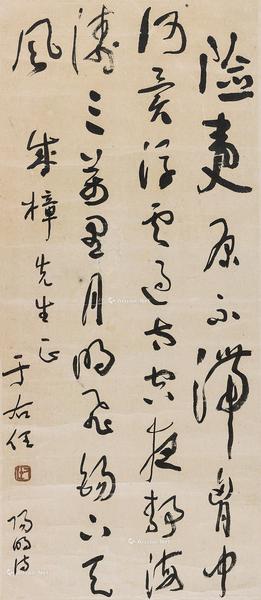 險夷原不滯胸中
何異浮雲過太空夜靜海
濤三萬里月明飛錫下天
風
成樟先生正
于右任
陽明詩